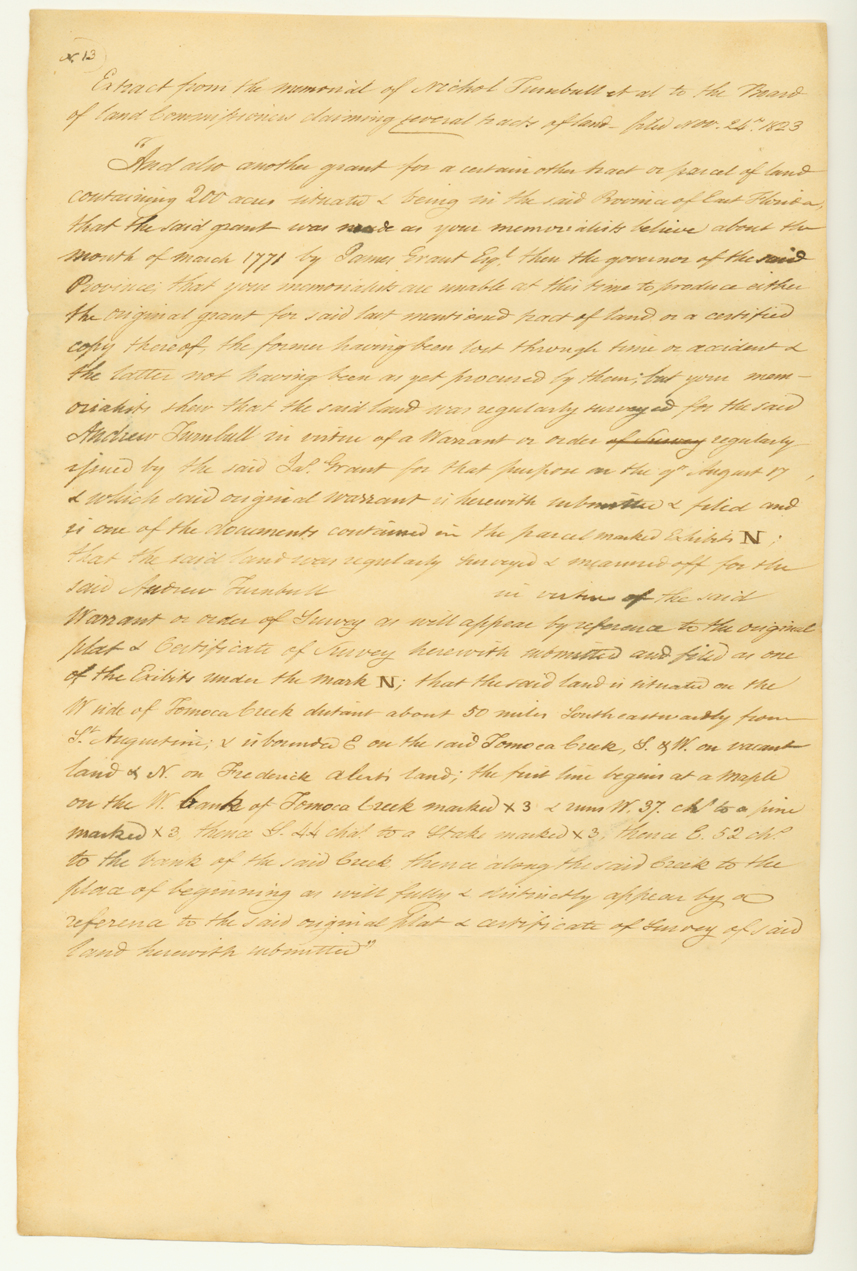 N. 13
Extract from the memorial of Nichol Turnbull et al to the Board
of land Commissioners claiming several tracts of land - filed Nov. 24th 1823
"And also another grant for a certain other tract or parcel of land
containing 200 acres situate & being in the said Province of East Florida,
that the said grant was made as your memorialists believe about the
month of march 1771 by James Grant Esqr. then the governor of the said
Province: that your memorialists are unable at this time to produce either
the original grant for said last mentioned tract of land or a certified
copy thereof, the former having been lost through time or accident &
the latter not having been as yet procured by them; but your mem-
orialists shew that the said land was regularly surveyed for the said
Andrew Turnbull in virtue of a Warrant or order of Survey regularly
issued by the said Jas. Grant for that purpose on the 9th August 17 ,
& which said original warrant is herewith submitted & filed and
is one of the documents contained in the parcel marked Exhibits N ;
that the said land was regularly surveyed & measured off for the
said Andrew Turnbull in virtue of the said
Warrant or order of Survey as will appear by reference to the original
plat & Certificate of Survey herewith submitted and filed as one
of the Exibits under the mark N; that the said land is situated on the
W side of Tomoca Creek distant about 50 miles Southeastwardly from
St. Augustine; & is bounded E on the said Tomoca Creek, S. & W. on vacant
land & N. on Frederick Alert's land; the first line begins at a Maple
on the W. bank of Tomoca Creek marked X 3 & runs W. 37. chs to a pine
marked X 3, thence S. 44 chs. to a Stake marked X 3, thence E. 52 chs.
to the bank of the said Creek thence along the said Creek to the
place of beginning as will fully & distinctly appear by a
reference to the said original plat & certificate of Survey of said
land herewith submitted"